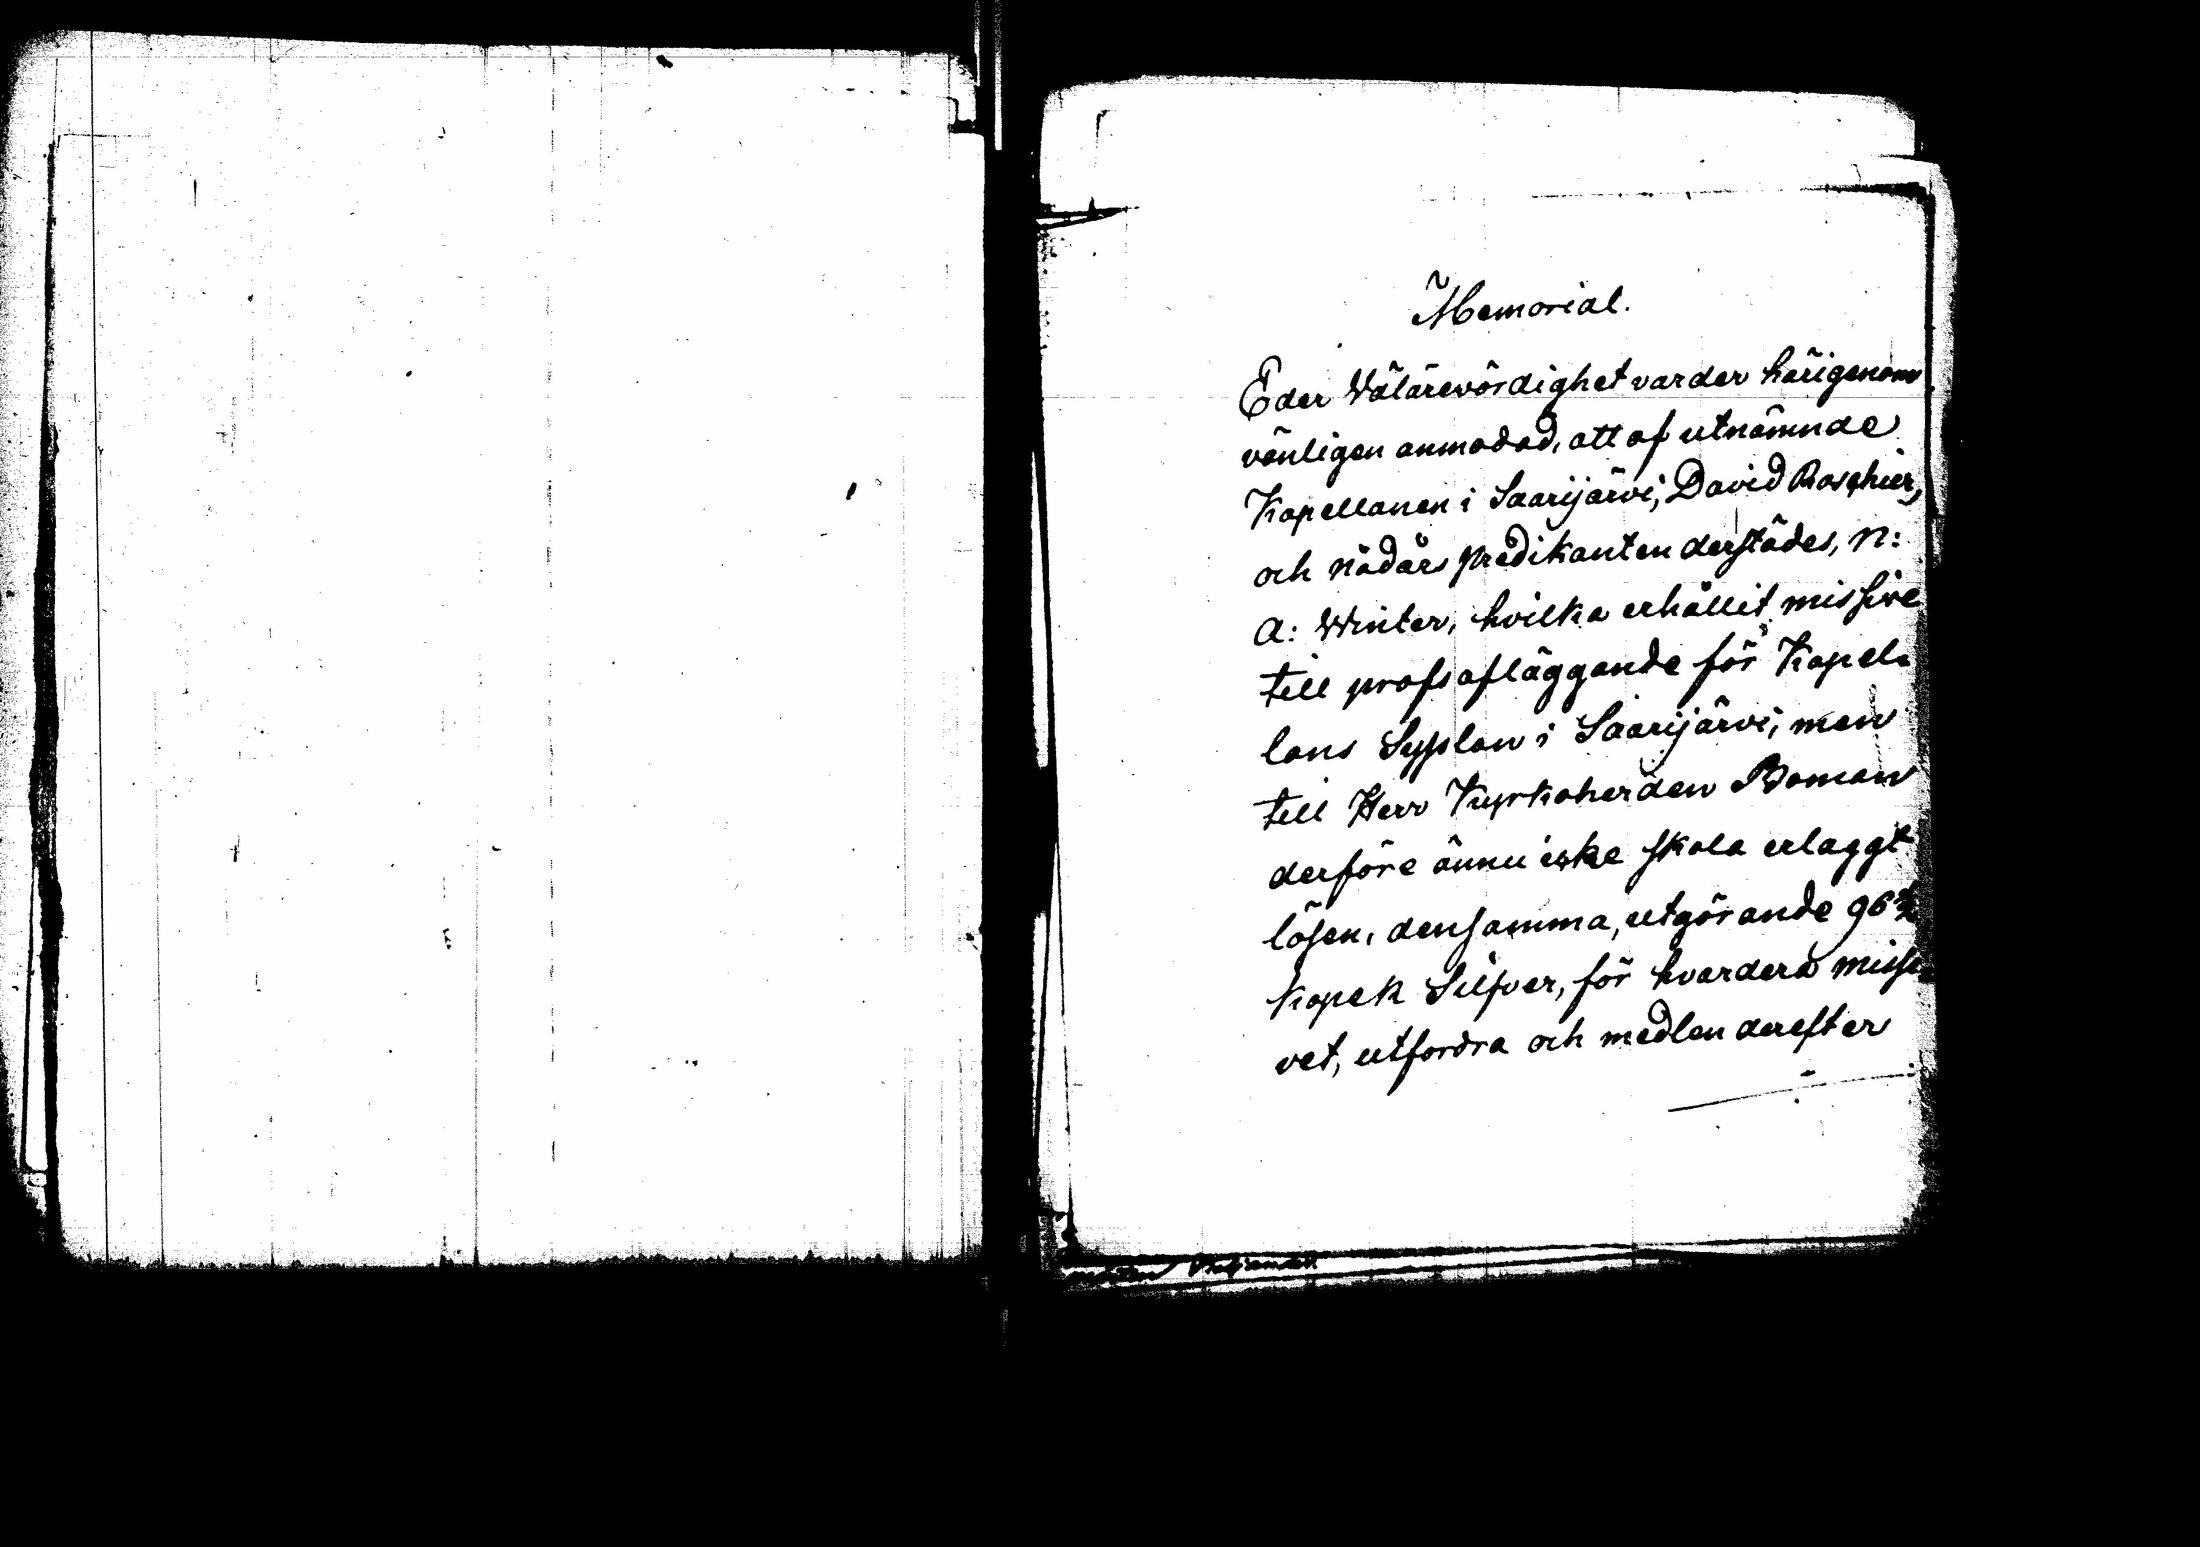 Memorial.
Eder Välärevördighet varder härigenom
vänligen anmodad, att af utnämnde
Kapellanen i Saarijärvi, David Roschier,
och nådårs predikanten derstädes, N:
A: Winter, hvilka erhållit missive
till profs afläggande för Kapel-
lans Sysslan i Saarijärvi, men
till Herr Kyrkoherden Boman
derföre ännu icke skola erlaggt
lösen, densamma, utgörande 96
kopek Silfver, för hvardera missi-
vet, utfordra och medlen derefter